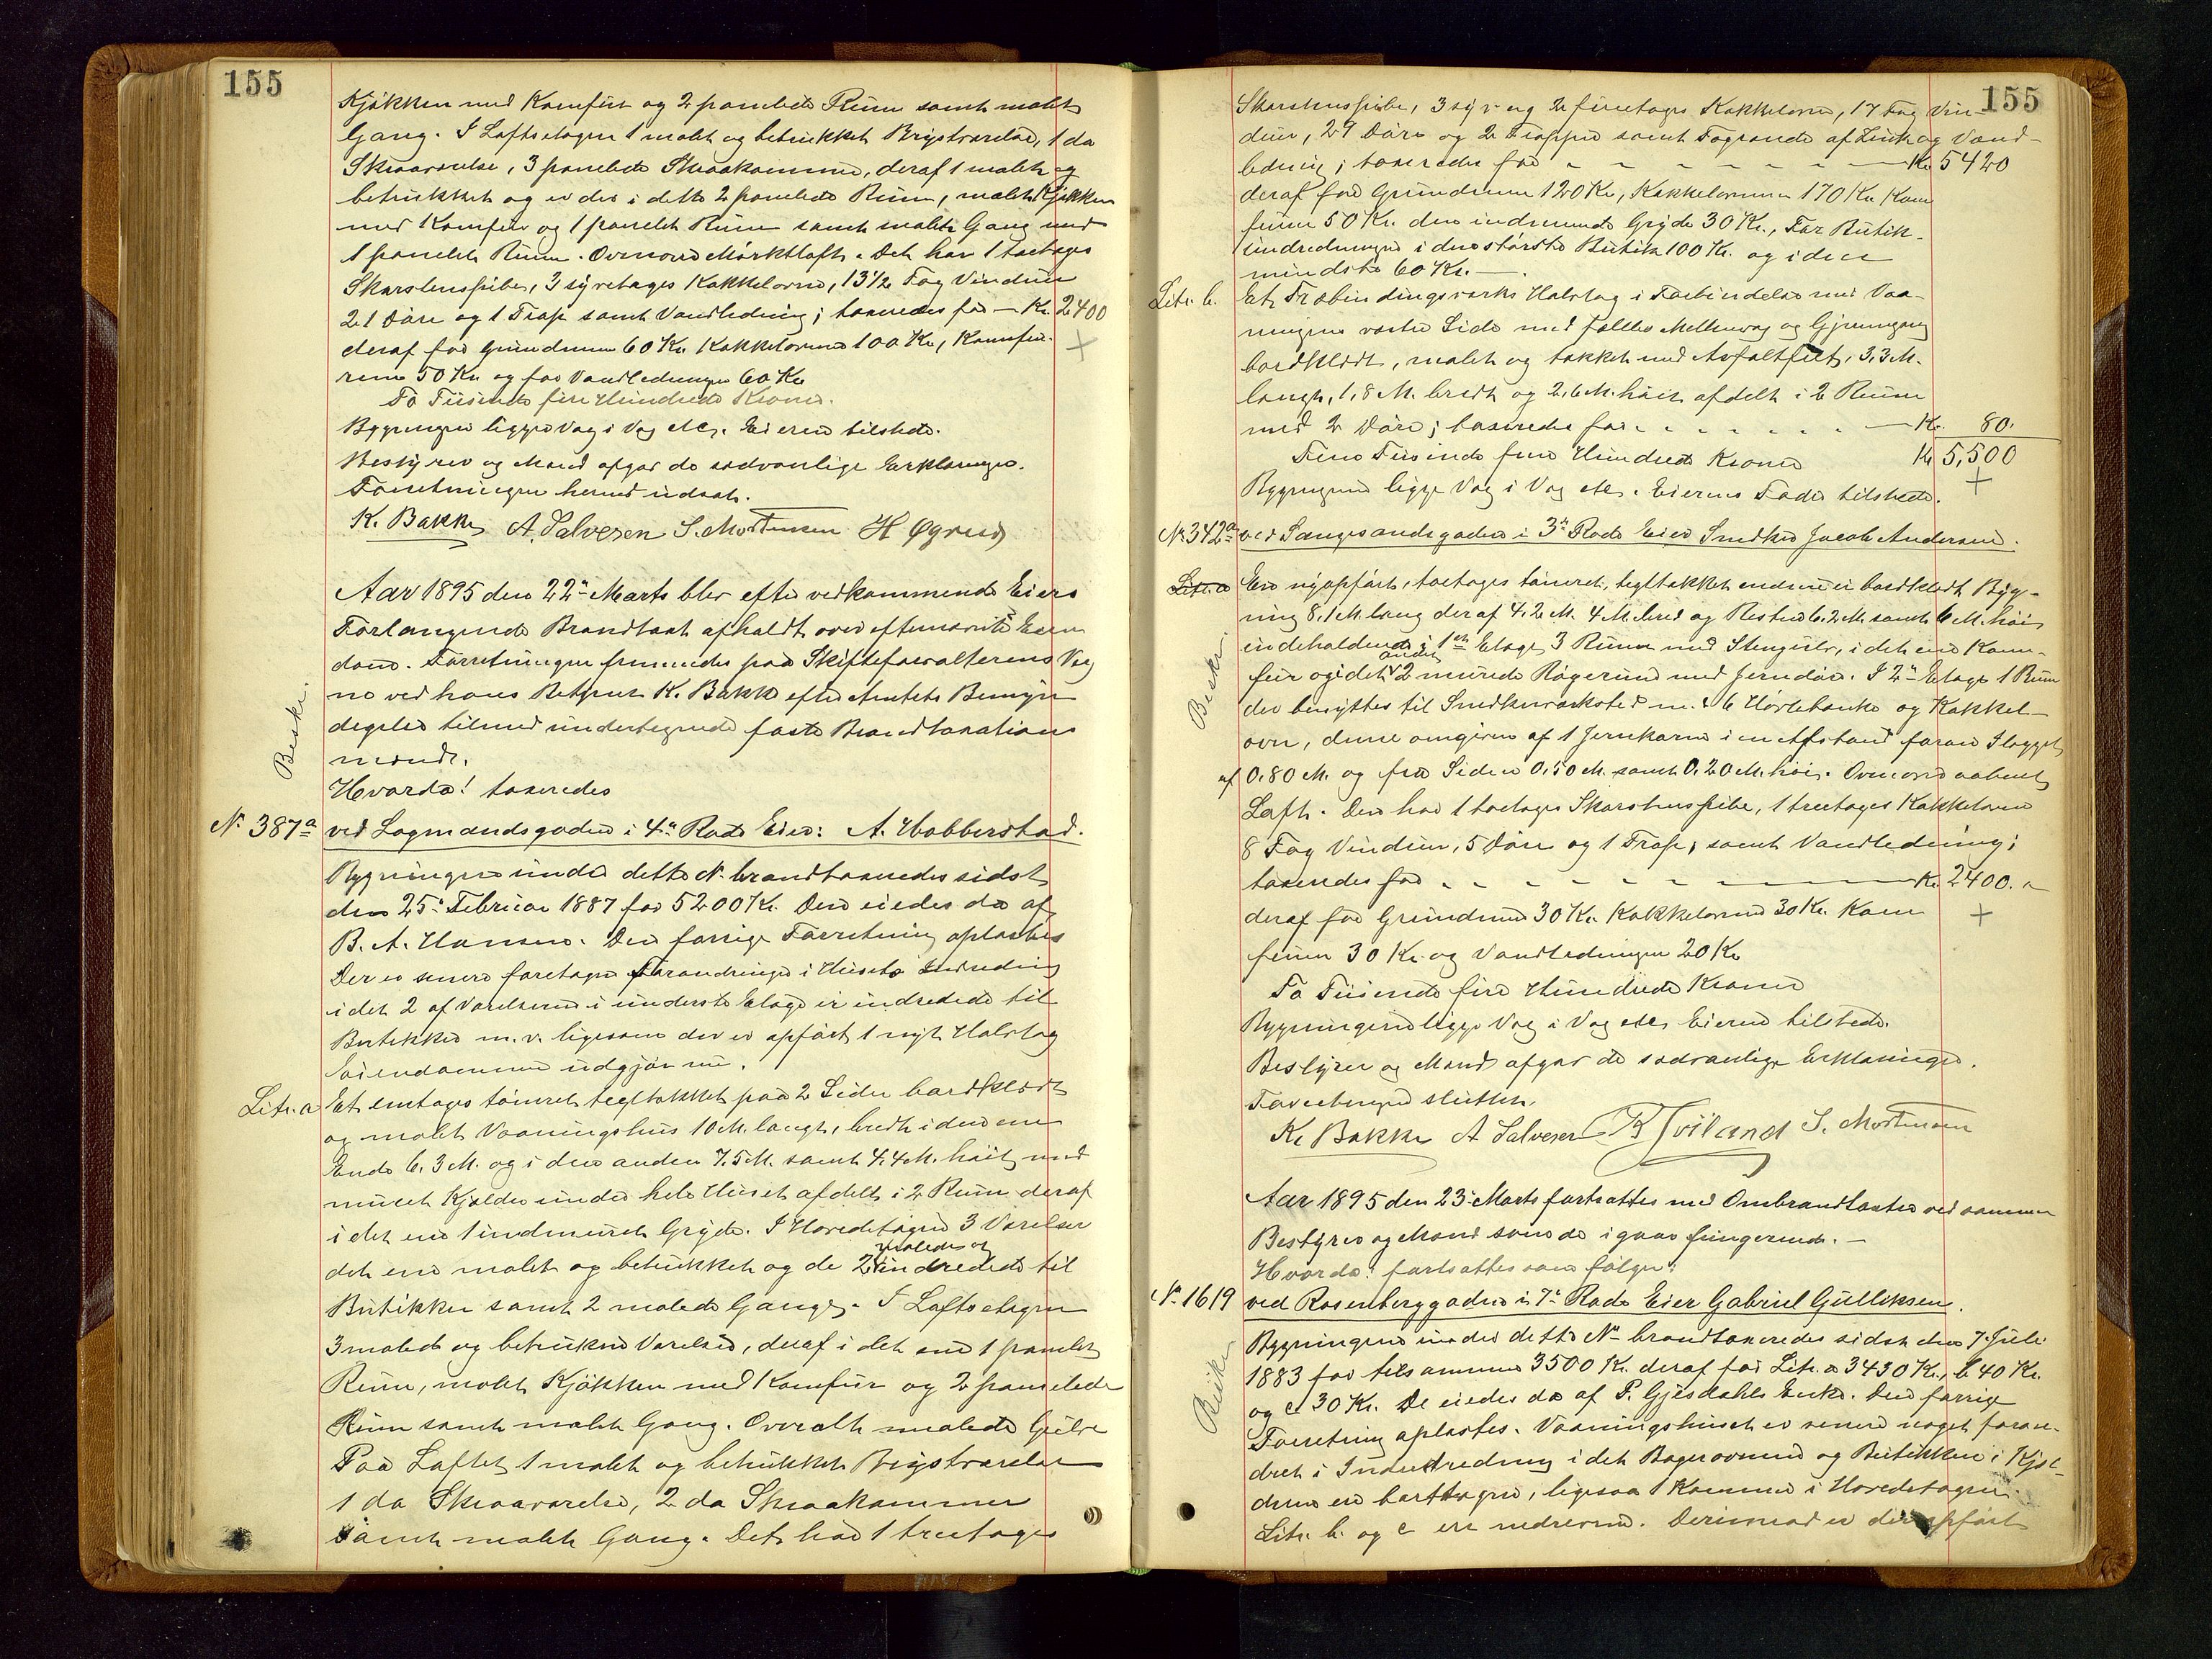 155
Kjøkken med Komfur og 2 panelede Rum samt malet
Gang. I Loftsetagen 1 malet og betrukket Brystværelse, 1 do
Skraaværelse, 3 panelede Skraakammere, deraf 1 malet og
betrukket og er der i dette 2 panelede Rum, malet Kjøkken
med Komfur og 1 panelet Rum samt malet Gang med
1 panelet Rum. Ovenover Mørktloft. Det har 1 toetages
Skorstenspibe, 3 syvetages Kakkelovne, 13½ Fag Vinduer
21 Døre og 1 Trap samt Vandledning; taxeredes for — Kr. 2400
deraf for Grundmuren 60 Kr. Kakkelovnene 100 Kr., Komfu-
rene 50 Kr. og for Vandledningen 60 Kr.
To Tusinde fire Hundrede Kroner.
Bygningen ligger Væg i Væg etc. Eieren tilstede.
Bestyrer og Mænd afgav de sædvanlige Erklæringer.
Forretningen hermed udsat.
K. Bakke A. Salvesen S. Mortensen H Øgreid
Beskr.
Aar 1895 den 22de Marts blev efter vedkommende Eiers
Forlangende Brandtaxt afholdt over eftennævnte Eien
domme. Forretningen fremmedes paa Skifteforvalterens Veg
ne ved hans Betjent K. Bakke efter Amtets Bemyn
digelse tilmed undertegnede faste Brandtaxations
mænd.
Hvorda! taxeredes
No 387a ved Lagmandsgaden i 4de Rode Eier: A. Hobberstad.
Bygningen under dette No brandtaxeredes sidst
den 25de Februar 1887 for 5200 Kr. Den eiedes da af
B. A. Hansen. Den forrige Forretning oplæstes
Der er senere foretagen Forandringer i Husets Indredning
idet 2 af Værelserne i underste Etage er indredede til
Butikker m. v. ligesom der er opført 1 nyt Halvtag
Eiendommen udgjør nu.
Litr. a Et enetages tømret tegltækket paa 2 Sider bordklædt
og malet Vaaningshus 10 M. langt, bredt i den ene
Ende 6.3 M. og i den anden 7.5 M. samt 4.4 M. høit, med
muret Kjælder under hele Huset afdelt i 2 Rum deraf
i det ene 1 indmuret Gryde. I Hovedetagen 3 Værelser
det ene malet og betrukket og de 2 malede og indredede til
Butikker samt 2 malede Gange. I Loftsetagen
3 malede og betrukne Værelser, deraf i det ene 1 panelet
Rum, malet Kjøkken med Komfur og 2 panelede
Rum samt malet Gang. Overalt malede Gulve
Paa Loftet 1 malet og betrukket Brystværelse
1 do Skraaværelse, 2 do Skraakammer
samt malet Gang. Det har 1 treetages
155
Skorstenspibe, 3 syv- og 2 fireetages Kakkelovne, 17 Fag Vin-
duer, 29 Døre og 2 Trapper samt Tagrende af Zink og Vand-
ledning; taxeredes for — Kr. 5420
deraf for Grundmuren 120 Kr., Kakkelovnene 170 Kr. Kom
furene 50 Kr. den indmurede Gryde 30 Kr., For Butik-
indredningen i den største Butik 100 Kr. og i den
mindste 60 Kr. —
Litr. b. Et Træbindingsværks Halvtag i Forbindelse med Vaa-
ningens vestre Side med fælles Mellemvæg og Gjennemgang
bordklædt, malet og tækket med Asfaltfilt, 3,3 M.
langt, 1,8 M. bredt og 2,6 M. høit afdelt i 2 Rum
med 2 Døre; taxeredes for — Kr. 80.
Fem Tusinde fem Hundrede Kroner Kr. 5,500
Bygningerne ligger Væg i Væg etc. Eierens Fader tilstede.
No 342a ved Langesandsgaden i 3die Rode Eier Snedker Jacob Andersen.
Beskr.
Litr. a En nyopført, toetages tømret, tegltækket endnu ei bordklædt Byg-
ning 8,1 M. lang deraf 4,2 M. 4 M. bred og Resten 6,2 M. samt 6 M. høi
indeholdende i 1ste Etage 3 Rum med Stengulv, i det ene Kom-
fur og i det andet 2 murede Røgerum med Jerndøre. I 2den Etage 1 Rum
der benyttes til Snedkerværksted med 6 Høvlebænke og Kakkel-
ovn, denne omgiven af 1 Jernkarm i en Afstand foran Ilægget
af 0,80 M. og fra Siden 0,50 M. samt 0,20 M. høi. Ovenover aabent
Loft. Den har 1 toetages Skorstenspibe, 1 treetages Kakkelovn
8 Fag Vinduer, 5 Døre og 1 Trap, samt Vandledning;
taxeredes for — Kr. 2400.
deraf for Grundmuren 30 Kr. Kakkelovnen 30 Kr. Kom
furen 30 Kr. og Vandledningen 20 Kr.
To Tusinde fire Hundrede Kroner
Bygningerne ligger Væg i Væg etc. Eieren tilstede.
Bestyrer og Mænd afgav de sædvanlige Erklæringer.
Forretningen sluttet.
K. Bakke A Salvesen S. Mortensen
Aar 1895 den 23de Marts fortsattes med Ombrandtaxter ved samme
Bestyrer og Mænd som de igaar fungerende. —
Hvorda! fortsattes som følger:
No 1619 ved Rosenberggaden i 7de Rode Eier Gabriel Gulliksen.
Beskr.
Bygningerne under dette No brandtaxeredes sidst den 7. Juli
1883 for tilsammen 3500 Kr. deraf for Litr. a 3430 Kr., b 40 Kr.
og c 30 Kr. De eiedes da af P. Gjesdahls Enke. Den forrige
Forretning oplæstes. Vaaningshuset er senere noget foran-
dret i Indredning idet Bagerovnen og Butikken i Kjæl-
deren ere borttagne, ligesaa 1 Kammer i Hovedetagen.
Litr. b. og c ere nedrevne. Derimod er der opført